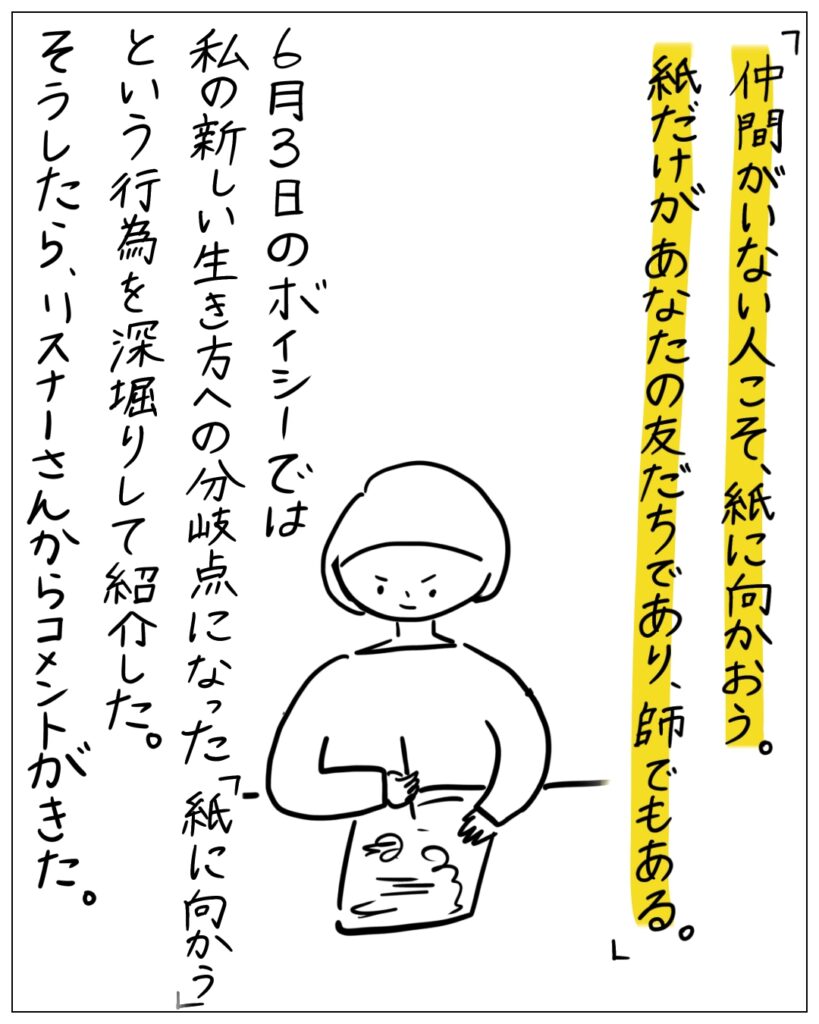 「仲間がいない人こそ、紙に向かおう。
紙だけがあなたの友だちであり、師でもある。」
6月3日のボイシーでは
私の新しい生き方への分岐点になった「紙に向かう」
という行為を深堀りして紹介した。
そうしたら、リスナーさんからコメントがきた。